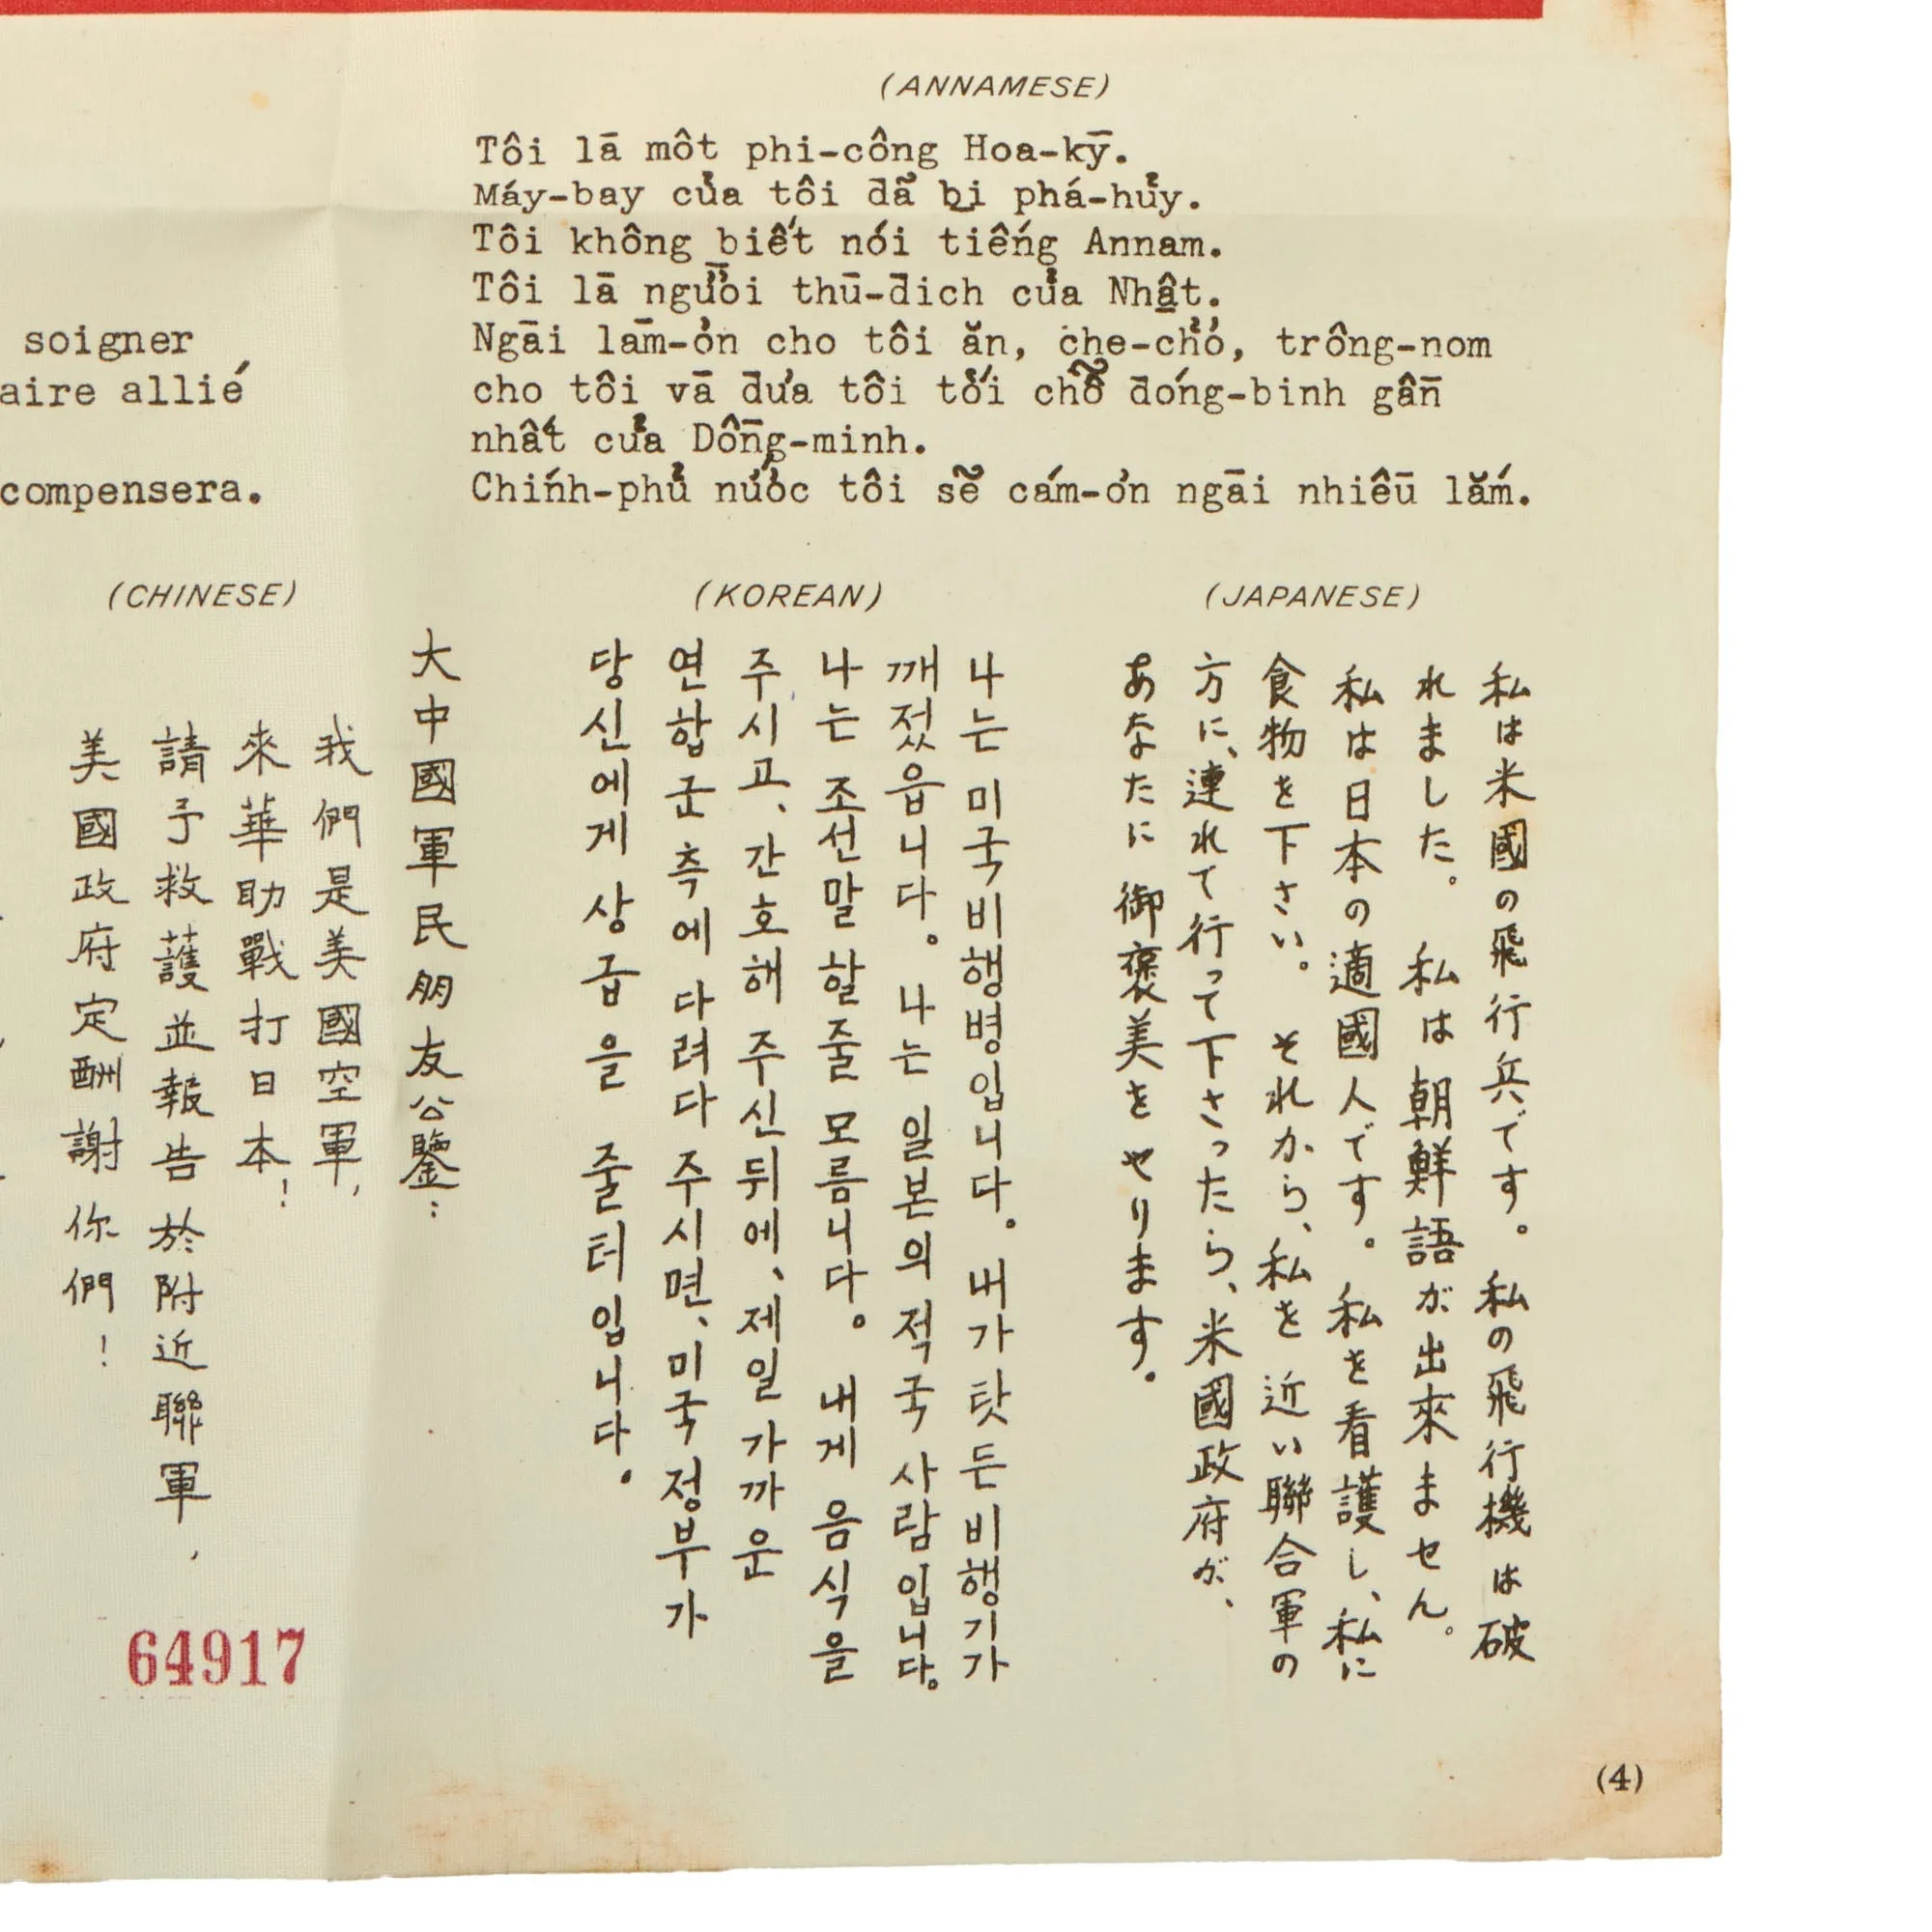 (ANNAMESE)
Tôi lā môt phi-công Hoa-kȳ.
Máy-bay của tôi đã bị phá-hủy.
Tôi không biết nói tiếng Annam.
Tôi lā người thū-đich của Nhật.
Ngāi lām-ởn cho tôi ăn, che-chở, trông-nom
cho tôi vā đưa tôi tới chỗ đóng-binh gần̄
nhất của Dồng-minh.
Chính-phủ nước tôi sẽ cám-ơn ngāi nhiêū lắm.
soigner
aire allié
compensera.
(CHINESE)
大中國軍民朋友公鑒：
我們是美國空軍，
來華助戰打日本！
請予救護並報告於附近聯軍，
美國政府定酬謝你們！
(KOREAN)
나는 미국비행병입니다。 내가 탓든 비행기가
깨졌읍니다。 나는 일본의 적국 사람입니다。
나는 조선말 할줄 모름니다。 내게 음식을
주시고、간호해 주신뒤에、제일 가까운
연합군 측에 다려다 주시면、미국 정부가
당신에게 상급을 줄터입니다。
(JAPANESE)
私は米國の飛行兵です。私の飛行機は破
れました。 私は朝鮮語が出來ません。
私は日本の適國人です。私を看護し、私に
食物を下さい。 それから、私を近い聯合軍の
方に、連れて行って下さったら、米國政府が、
あなたに御褒美をやります。
64917
(4)